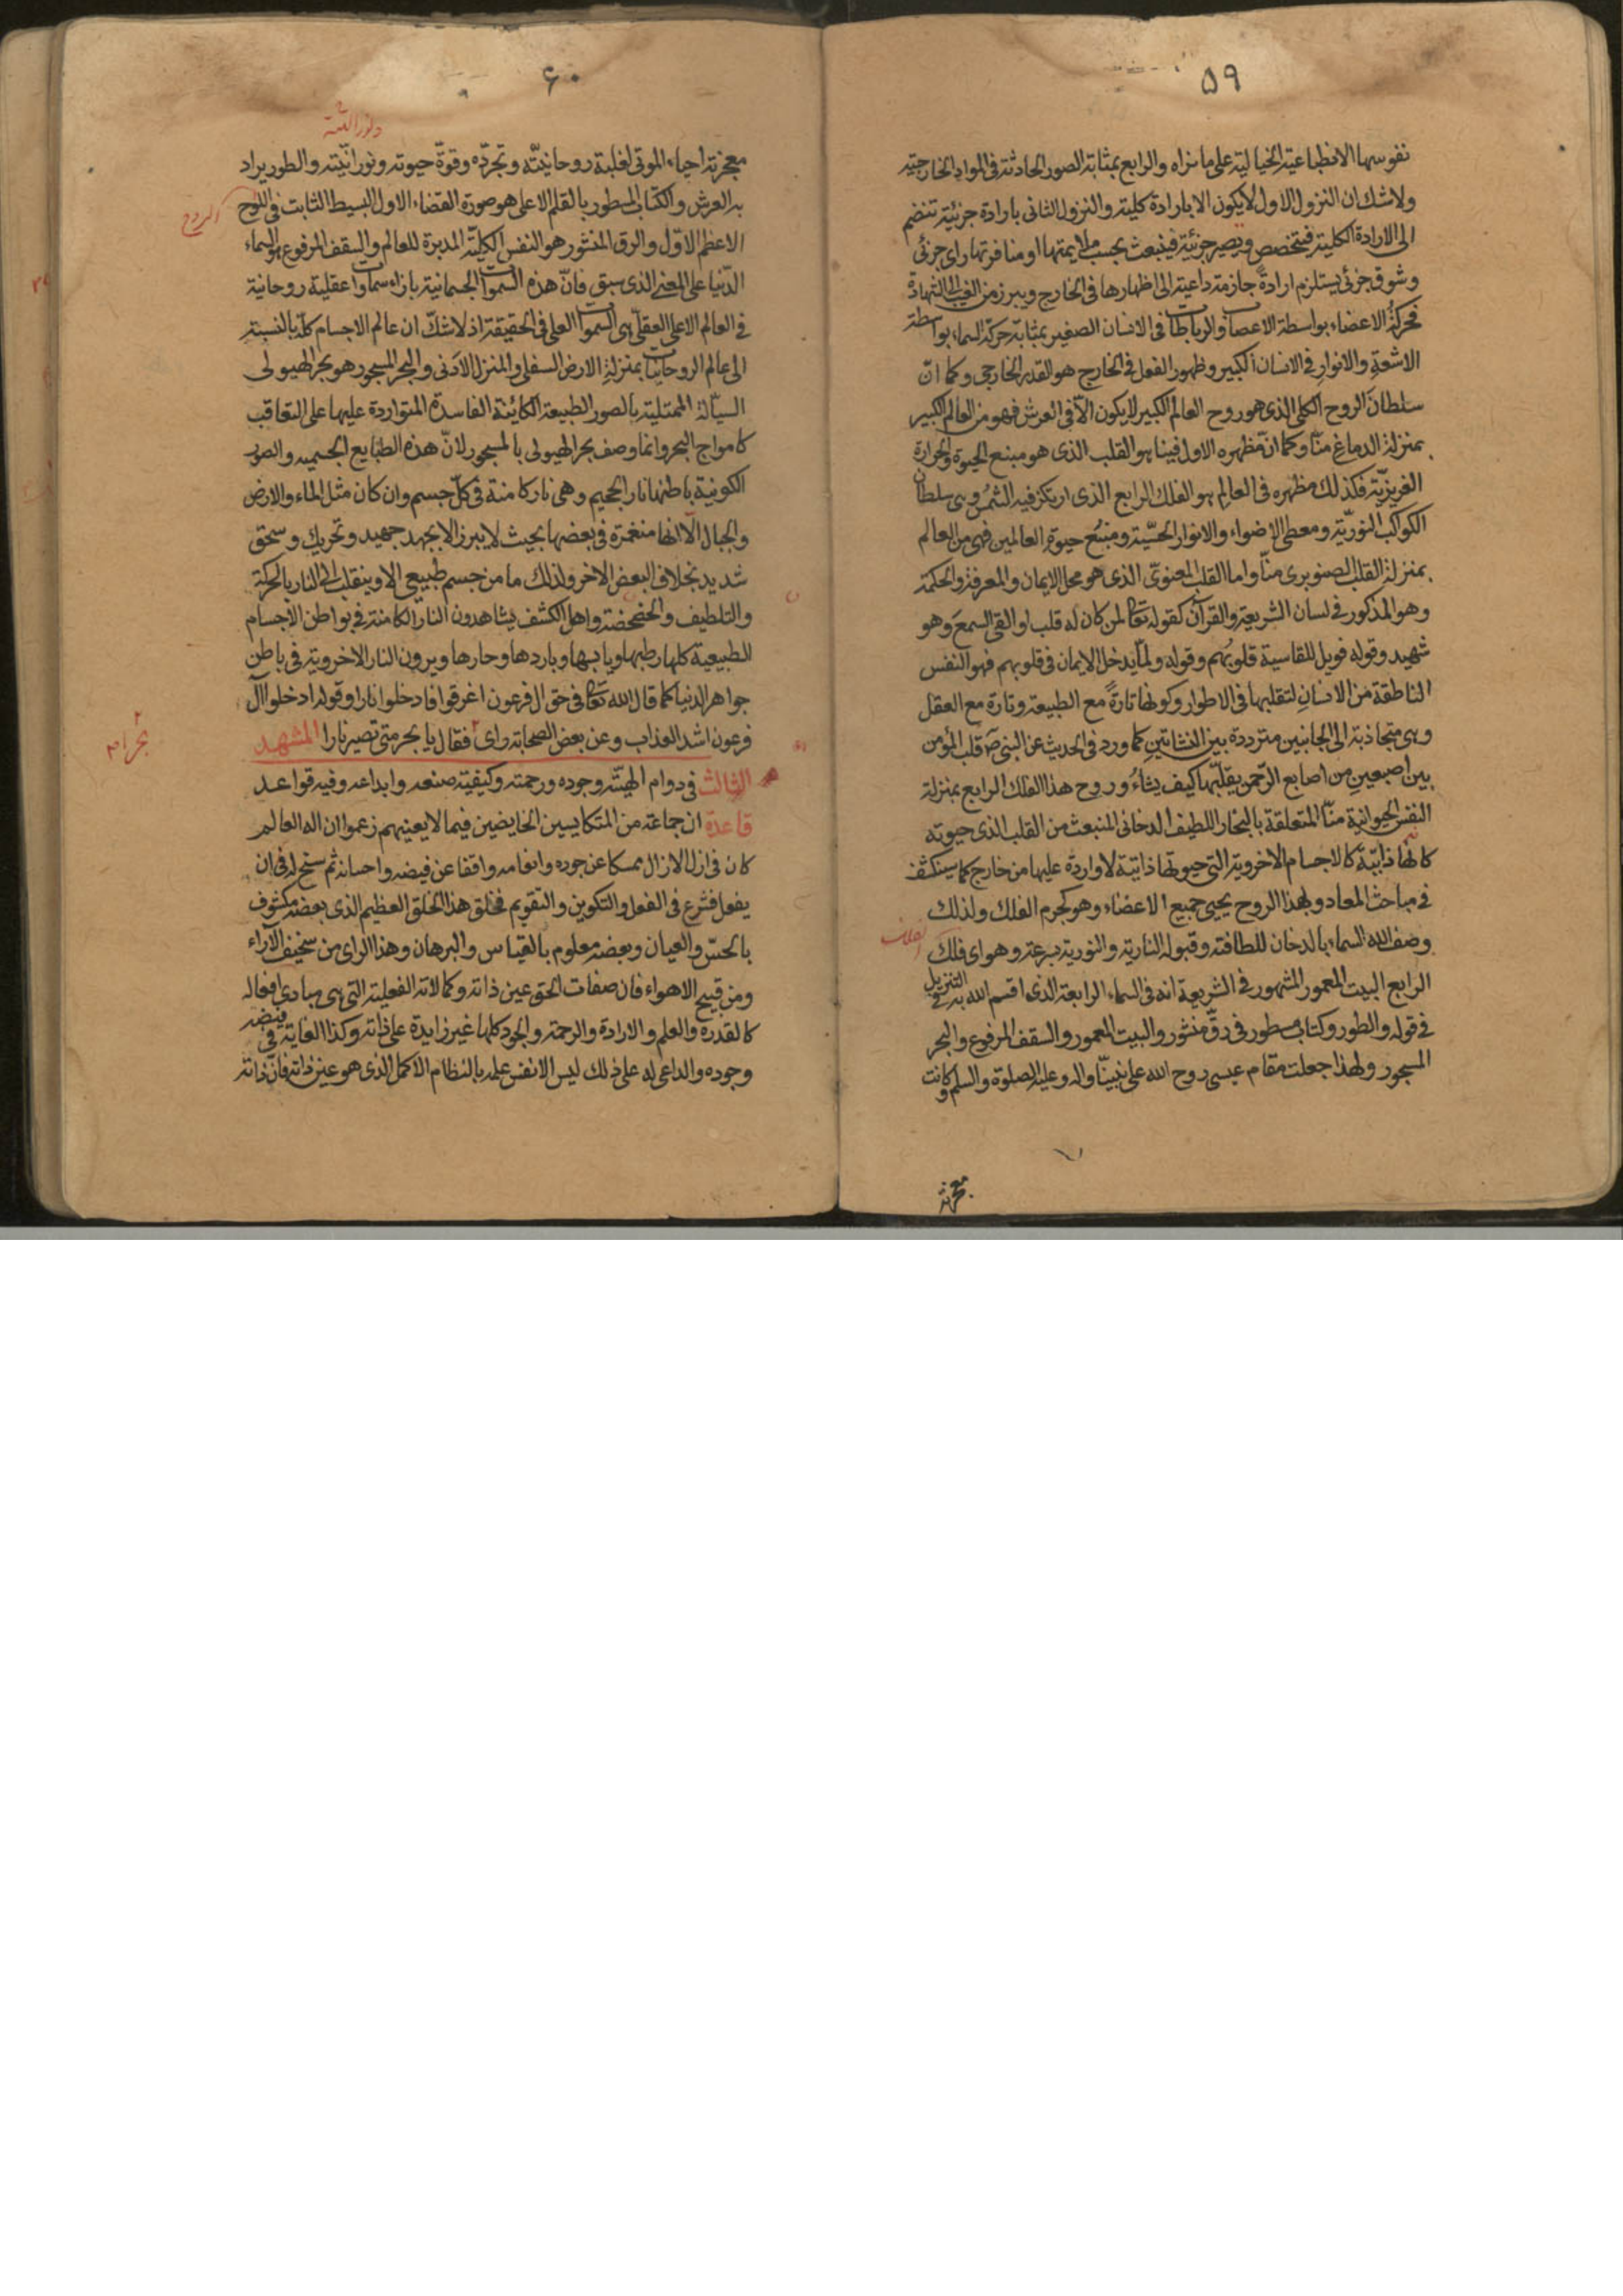 ٥٩
نفوسها الانطباعية الخيالية على ما نراه والرابع بمثابة الصور الحادثة فى المواد الخارجية
ولا شك ان النزول الاول لا يكون الا بارادة كلية والنزول الثانى بارادة جزئية تنضم
الى الارادة الكلية فيتخصص ويصير جزئية فينبعث بحسب ملايمتها او منافرتها راى جزئى
وشوق جزئى يستلزم ارادة جازمة داعية الى اظهارها فى الخارج ويبرز من الغيب الى الشهادة
فحركة الاعضاء بواسطة الاعصاب والرباطات فى الانسان الصغير بمثابة حركة السماء بواسطة
الاشعة والانوار فى الانسان الكبير وظهور الفعل فى الخارج هو القدر الخارجى وكما انّ
سلطان الروح الكلى الذى هو روح العالم الكبير لا يكون الّا فى العرش فهو من العالم الكبير
بمنزلة الدماغ منّا وكما انّ مظهره الاول فينا هو القلب الذى هو منبع الحيوة والحرارة
الغريزيّة فكذلك مظهره فى العالم هو الفلك الرابع الذى ارتكز فيه الشمس وهى سلطان
الكواكب النوريّة ومعطى الاضواء والانوار الحسّية ومنبع حيوة العالمين فهى من العالم
بمنزلة القلب الصنوبرى منّا واما القلب المعنوىّ الذى هو محل الايمان والمعرفة والحكمة
وهو المذكور فى لسان الشريعة والقرآن كقوله تعالى لمن كان له قلب او القى السمع وهو
شهيد وقوله فويل للقاسية قلوبُهم وقوله ولمّا يدخل الايمان فى قلوبهم فهو النفس
الناطقة من الانسان لتقلبها فى الاطوار وكونها تارةً مع الطبيعة وتارة مع العقل
وهى متجاذبة الى الجانبين مترددة بين النشاتين كما ورد فى الحديث عن النبى ص قلب المؤمن
بين اصبعين من اصابع الرّحمن يقلّبها كيف يشاءُ وروح هذا الفلك الرابع بمنزلة
النفس الحيوانية منّا المتعلقة بالبخار اللطيف الدخانى المنبعث من القلب الذى حيوته
كانها ذاتيّة كالاجسام الاخروية التى حيوتها ذاتية لا واردة عليها من خارج كما سينكشف
فى مباحث المعاد وبهذا الروح يحيى جميع الاعضاء وهو كجرم الفلك ولذلك
وصف الله السماء بالدخان للطافته وقبوله النارية والنورية بسرعة وهو اى فلك
الرابع البيت المعمور المشهور فى الشريعة انه فى السماء الرابعة الذى اقسم الله به فى التنزيل
فى قوله والطور وكتاب مسطور فى رقّ منشور والبيت المعمور والسقف المرفوع والبحر
المسجور ولهذا جعلت مقام عيسى روح الله على نبيّنا واله وعليه الصلوة والسلم وكانت
معجزته
٦٠
معجزته احياء الموتى لغلبة روحانيّته وتجرّده وقوّة حيوته ونورانيّته والطور يراد
به العرش والكتاب المسطور بالقلم الاعلى هو صورة القضاء الاول البسيط الثابت فى اللوح
الروح
الاعظم الاوّل والرق المنشور هو النفس الكليّة المدبرة للعالم والسقف المرفوع هو السماء
الدّنيا على المعنى الذى سبق فانّ هذه السموات الجسمانية بازاء سماوات عقلية روحانية
فى العالم الاعلى العقلى هى السموات العلى فى الحقيقة اذ لا شكّ ان عالم الاجسام كلّه بالنسبة
الى عالم الروحانيات بمنزلة الارض السفلى والمنزل الادنى والبحر المسجور هو بحر الهيولى
السيّالة الممتلية بالصور الطبيعة الكائنة الفاسدة المتواردة عليها على التعاقب
كامواج البحر وانما وصف بحر الهيولى بالمسجور لانّ هذه الطبايع الجسمية والصور
الكونية باطنها نار الجحيم وهى نار كامنة فى كلّ جسم وان كان مثل الماء والارض
والجبال الّا انها منغمرة فى بعضها بحيث لا يبرز الا بجهد جهيد وتحريك وسحق
شديد بخلاف البعض الاخر ولذلك ما من جسم طبيعى الا وينقلب الى النار بالحركة
والتلطيف والخضخضة واهل الكشف يشاهدون النار الكامنة فى بواطن الاجسام
الطبيعية كلها رطبها ويابسها وباردها وحارها ويرون النار الاخروية فى باطن
جواهر الدنيا كما قال الله تعالى فى حق ال فرعون اغرقوا فادخلوا نارا وقوله ادخلوا آل
فرعون اشد العذاب وعن بعض الصحابة راى فقال يا بحر متى تصير نارا المشهد
بحرا
الثالث فى دوام الهيّته وجوده ورحمته وكيفية صنعه وابداعه وفيه قواعد
قاعدة ان جماعة من المتكايسين الخايضين فيما لا يعينهم زعموا ان اله العالم
كان فى ازل الازال ممسكا عن جوده وانعامه واقفا عن فيضه واحسانه ثم سنح له فى ان
يفعل فشرع فى الفعل والتكوين والتقويم فخلق هذا الخلق العظيم الذى بعضه مكشوف
بالحسّ والعيان وبعضه معلوم بالقياس والبرهان وهذا الراى من سخيف الآراء
ومن قبيح الاهواء فان صفات الحق عين ذاته وكمالاته الفعلية التى هى مبادى افعاله
كالقدرة والعلم والارادة والرحمة والجود كلها غير زايدة على ذاته وكذا الغاية فى فيضه
وجوده والداعى له على ذلك ليس الا نفس علمه بالنظام الاكمل الذى هو عين ذاته فان ذاته